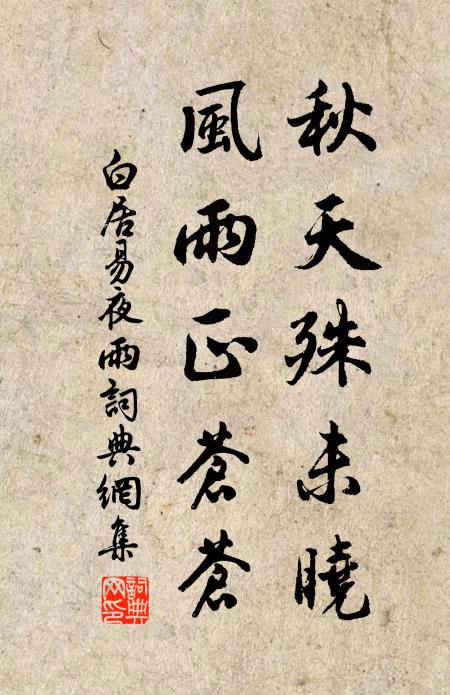 秋天殊未曉
風雨正蒼蒼
白居易夜雨詞典網集
詞典網印